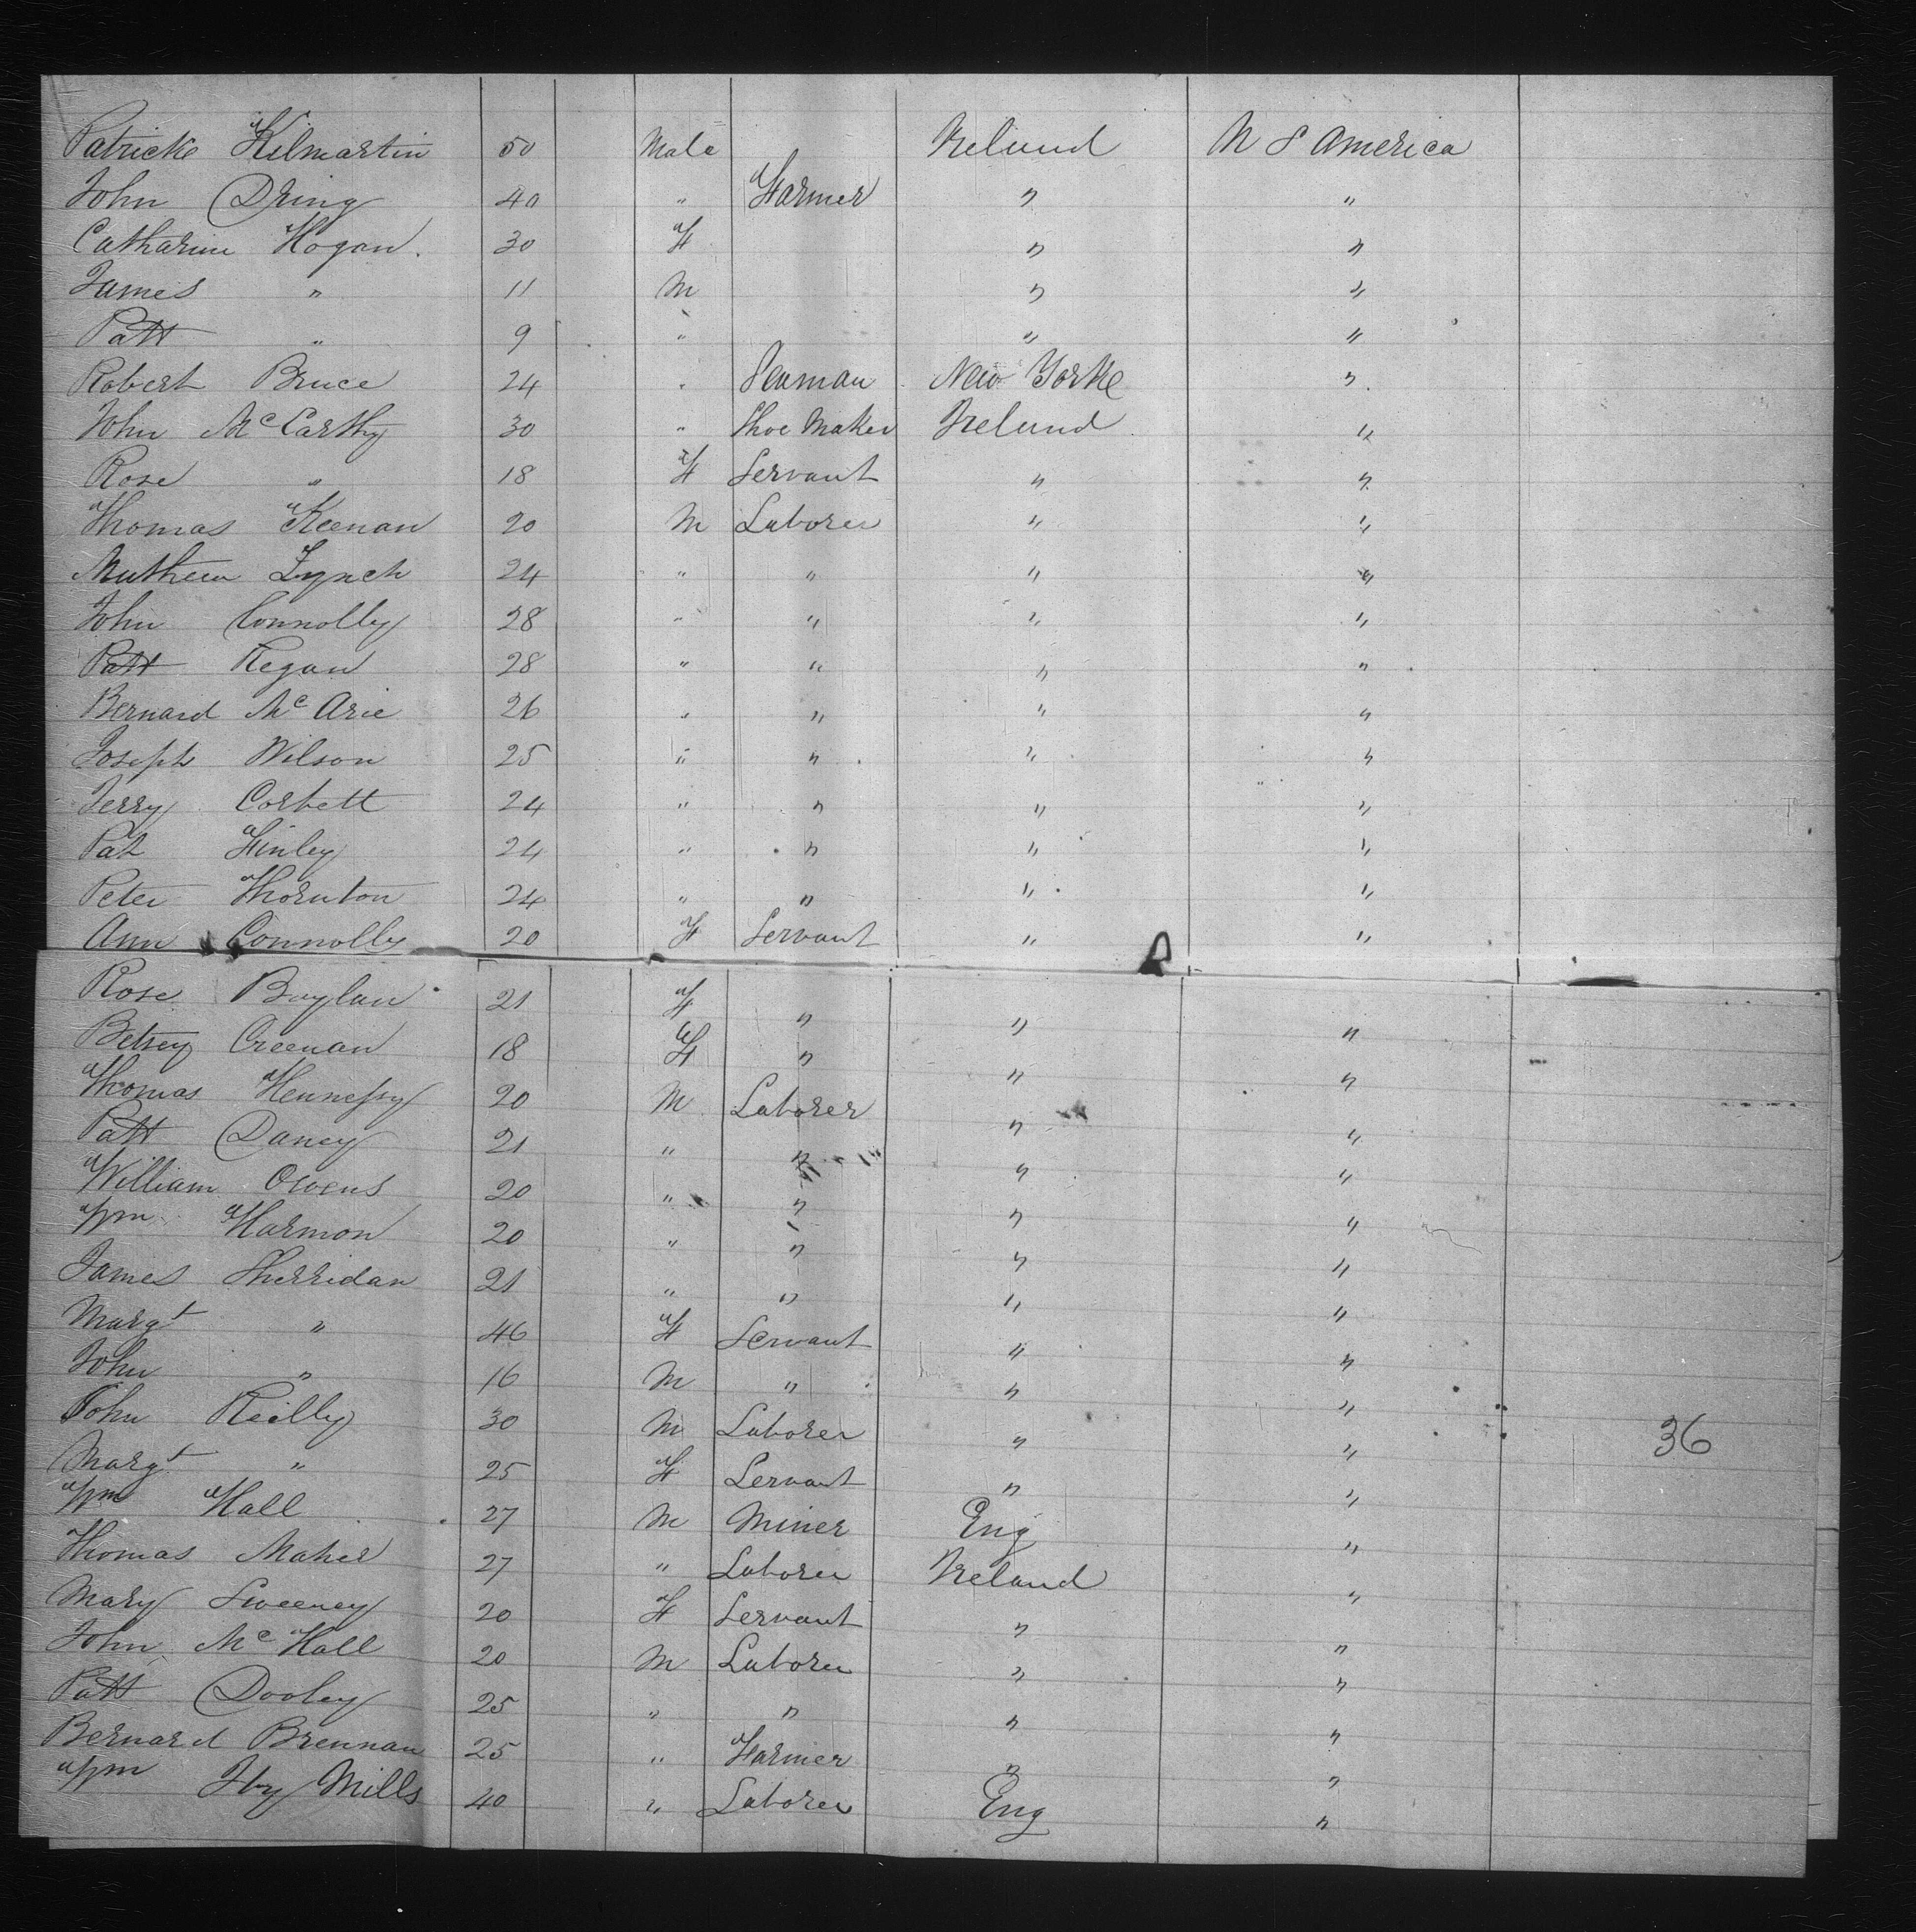 Patricke Kilmartin 50 Male Ireland U S America
John Dring 40 " Farmer " "
Catharine Hogan. 30 F " "
James " 11 M " "
Patt " 9 " " "
Robert Bruce 24 " Seaman New Yorke "
John McCarthy 30 " Shoe Maker Ireland "
Rose " 18 F Servant " "
Thomas Keenan 20 M Laborer " "
Mathew Lynch 24 " " " "
John Connolly 28 " " " "
Patt Regan 28 " " " "
Bernard Mc Arie 26 " " " "
Joseph Wilson 25 " " " "
Jerry Corbett 24 " " " "
Pat Finley 24 " " " "
Peter Thornton 24 " " " "
Ann Connolly 20 F Servant " "
Rose Boylan 21 F " " "
Betsey Creenan 18 F " " "
Thomas Hennessy 20 M Laborer " "
Patt Dancy 21 " " " "
William Owens 20 " " " "
Wm Harmon 20 " " " "
James Sherridan 21 " " " "
Margt " 46 F Servant " "
John " 16 M " " "
John Reilly 30 M Laborer " " 36
Margt " 25 F Servant " "
Wm Hall 27 M Miner Eng "
Thomas Maher 27 " Laborer Ireland "
Mary Sweeney 20 F Servant " "
John Mc Hall 20 M Laborer " "
Patt Dooley 25 " " " "
Bernard Brennan 25 " Farmer " "
Wm Mills 40 " Laborer Eng "